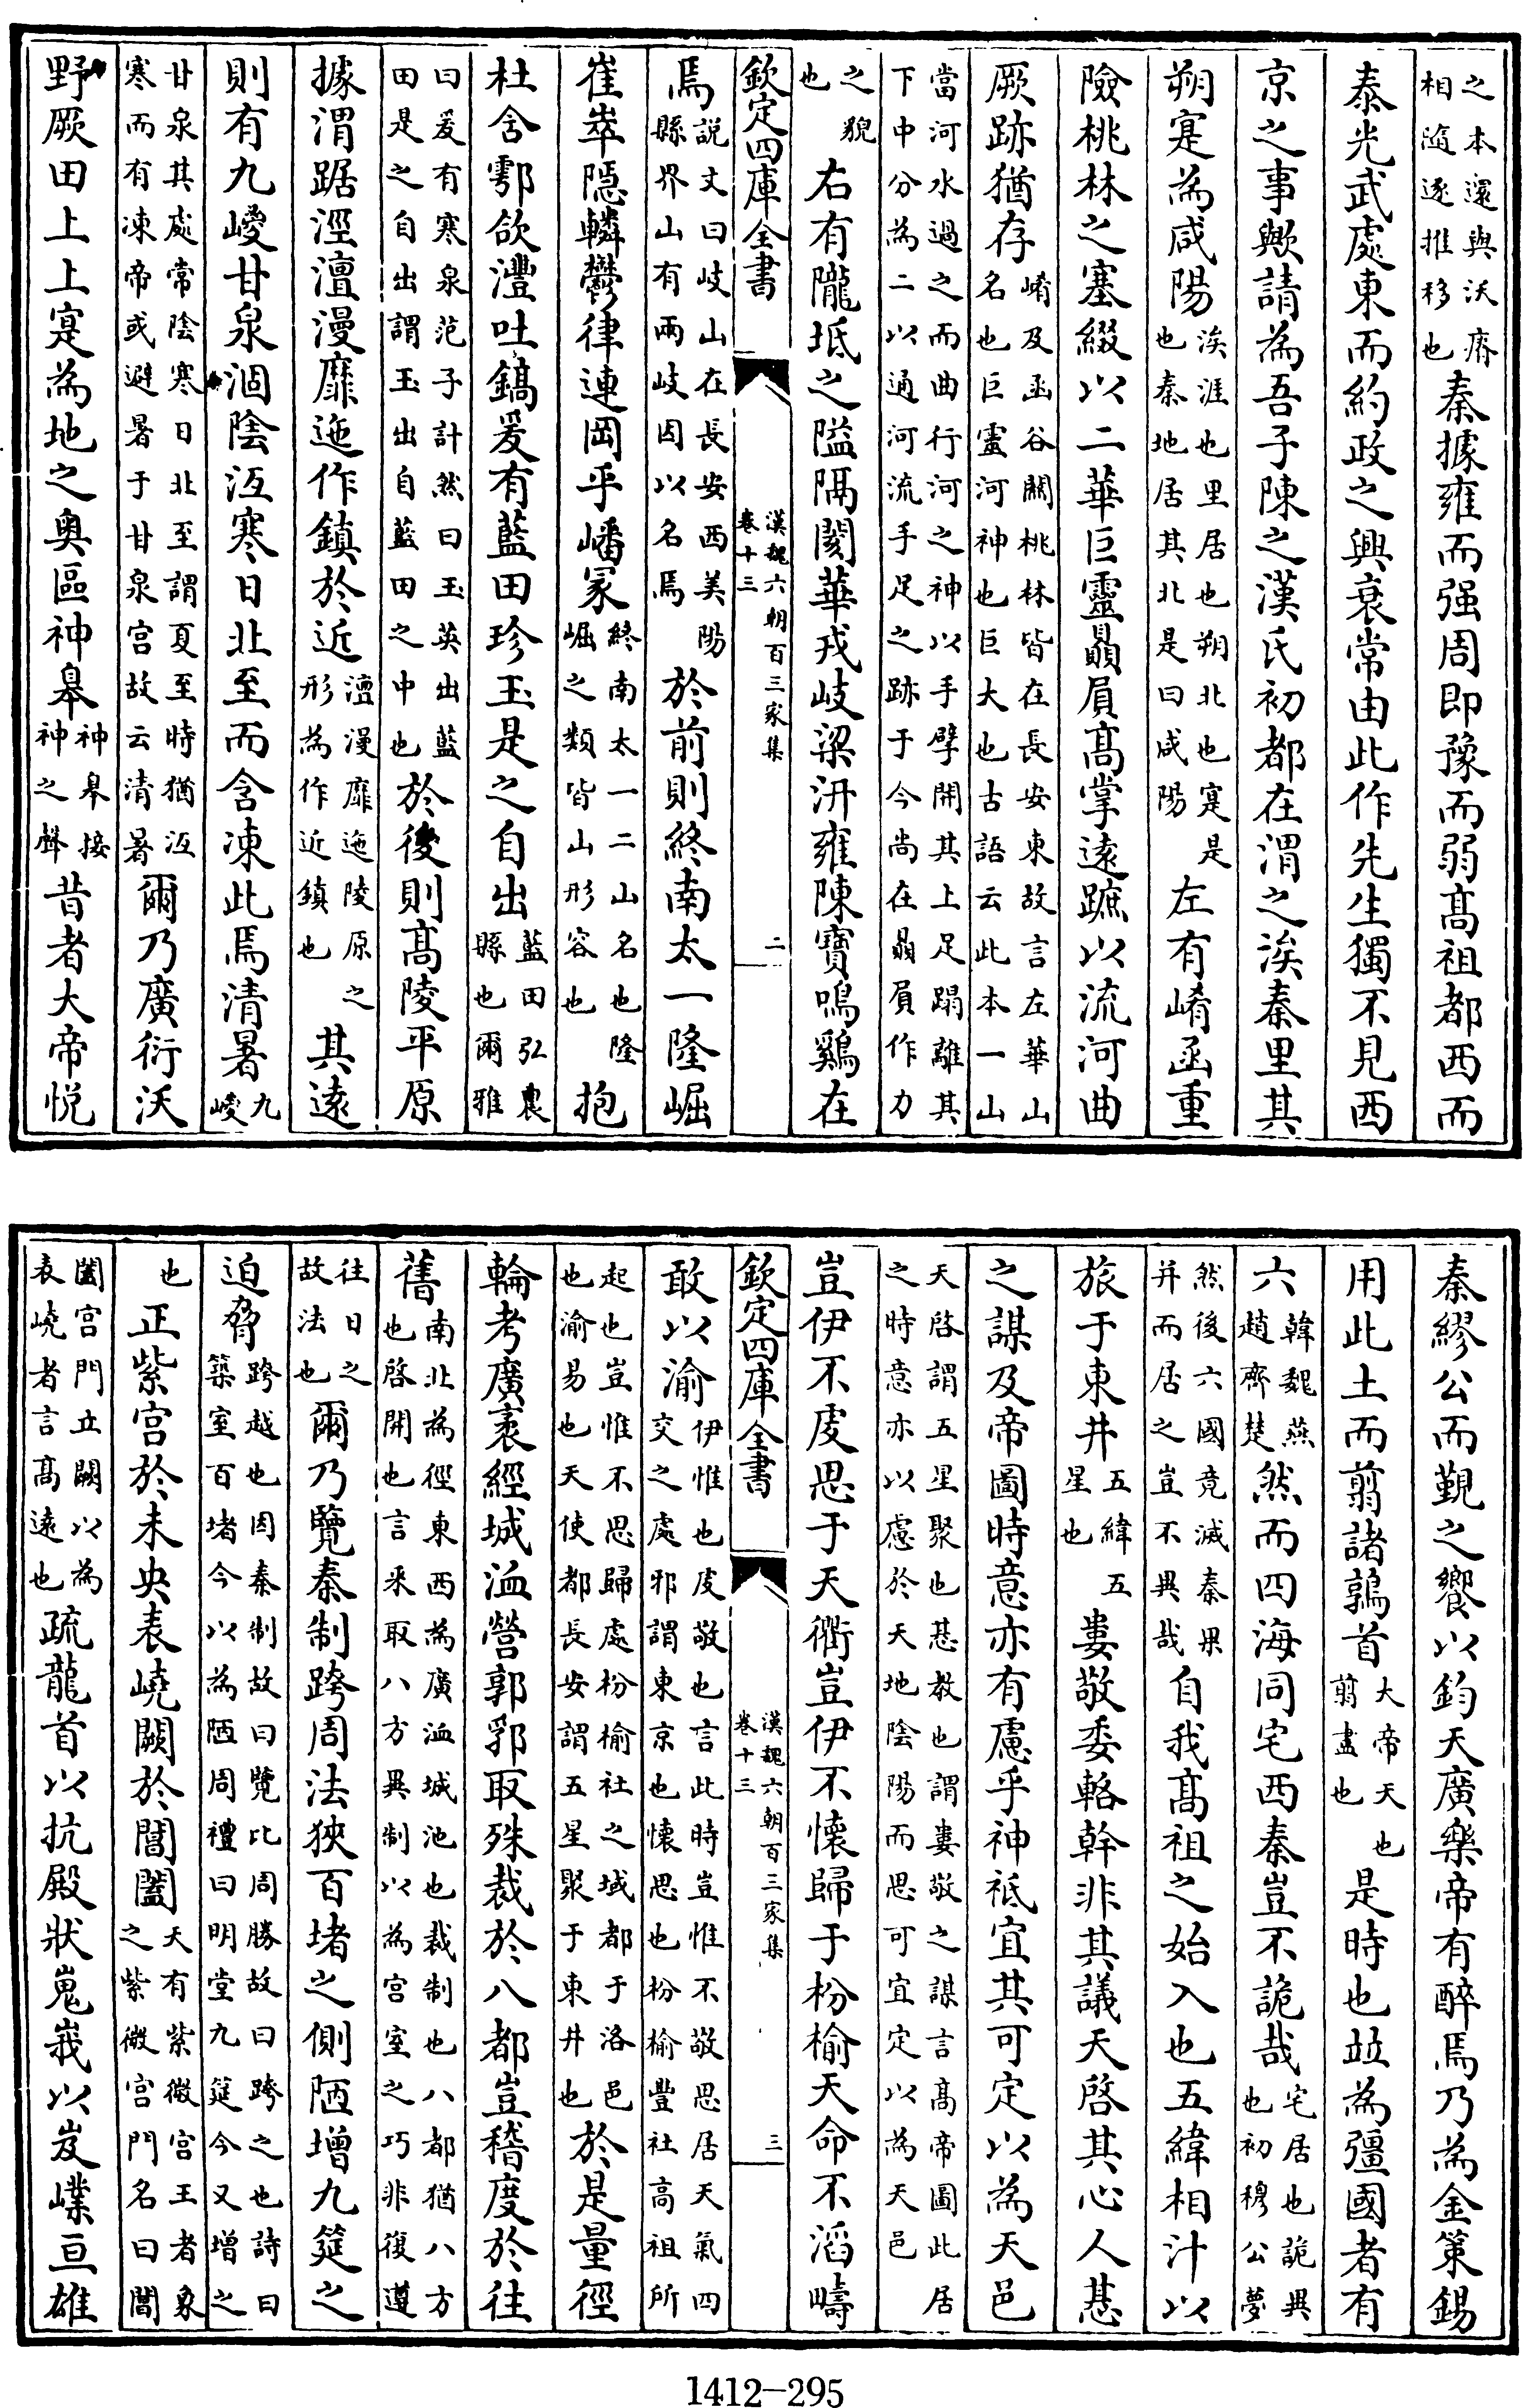 之本還與沃瘠相隨逐推移也秦據雍而强周即豫而弱髙祖都西而
泰光武處東而約政之興衰常由此作先生獨不見西
京之事歟請為吾子陳之漢氏初都在渭之涘秦里其
朔寔為咸陽涘涯也里居也朔北也寔是也秦地居其北是曰咸陽左有崤函重
險桃林之塞綴以二華巨靈贔屓髙掌逺蹠以流河曲
厥跡猶存崤及函谷關桃林皆在長安東故言左華山名也巨靈河神也巨大也古語云此本一山
當河水過之而曲行河之神以手擘開其上足蹋離其下中分為二以通河流手足之跡于今尚在贔屓作力
之貌也右有隴坻之隘隔閡華戎岐梁汧雍陳寶鳴鷄在
欽定四庫全書 漢魏六朝百三家集 卷十三 二
焉說文曰岐山在長安西美陽縣界山有兩岐因以名焉於前則終南太一隆崛
崔崒隠轔鬱律連岡乎嶓冢終南太一二山名也隆崛之類皆山形容也抱
杜含鄠欱灃吐鎬爰有藍田珍玉是之自出藍田弘農縣也爾雅
曰爰有寒泉范子計然曰玉英出藍田是之自出謂玉出自藍田之中也於後則髙陵平原
據渭踞涇澶漫靡迤作鎮於近澶漫靡迤陵原之形為作近鎮也其逺
則有九嵕甘泉涸陰沍寒日北至而含凍此焉清暑九嵕
甘泉其處常陰寒日北至謂夏至時猶沍寒而有凍帝或避暑于甘泉宫故云清暑爾乃廣衍沃
野厥田上上寔為地之奥區神臯神臯接神之聲昔者大帝悦
秦繆公而覲之饗以鈞天廣樂帝有醉焉乃為金策錫
用此土而翦諸鶉首大帝天也翦盡也是時也竝為彊國者有
六韓魏燕趙齊楚然而四海同宅西秦豈不詭哉宅居也詭異也初穆公夢
然後六國竟滅秦果并而居之豈不異哉自我髙祖之始入也五緯相汁以
旅于東井五緯五星也婁敬委輅幹非其議天啓其心人惎
之謀及帝圖時意亦有慮乎神祇宜其可定以為天邑
天啓謂五星聚也惎教也謂婁敬之謀言髙帝圖此居之時意亦以慮於天地陰陽而思可宜定以為天邑
豈伊不虔思于天衢豈伊不懷歸于枌榆天命不滔疇
欽定四庫全書 漢魏六朝百三家集 卷十三 三
敢以渝伊惟也虔敬也言此時豈惟不敬思居天氣四交之處邪謂東京也懷思也枌榆豐社高祖所
起也豈惟不思歸處枌榆社之域都于洛邑也渝易也天使都長安謂五星聚于東井也於是量徑
輪考廣袤經城洫營郭郛取殊裁於八都豈稽度於往
舊南北為徑東西為廣洫城池也裁制也八都猶八方也啓開也言釆取八方異制以為宫室之巧非復遵
往日之故法也爾乃覽秦制跨周法狹百堵之側陋増九筵之
迫脅跨越也因秦制故曰覽比周勝故曰跨之也詩曰築室百堵今以為陋周禮曰明堂九筵今又増之
也正紫宫於未央表嶢闕於閶闔天有紫微宫王者象之紫微宫門名曰閶
闔宫門立闕以為表嶢者言髙逺也疏龍首以抗殿狀嵬峩以岌嶪亘雄
1412-295